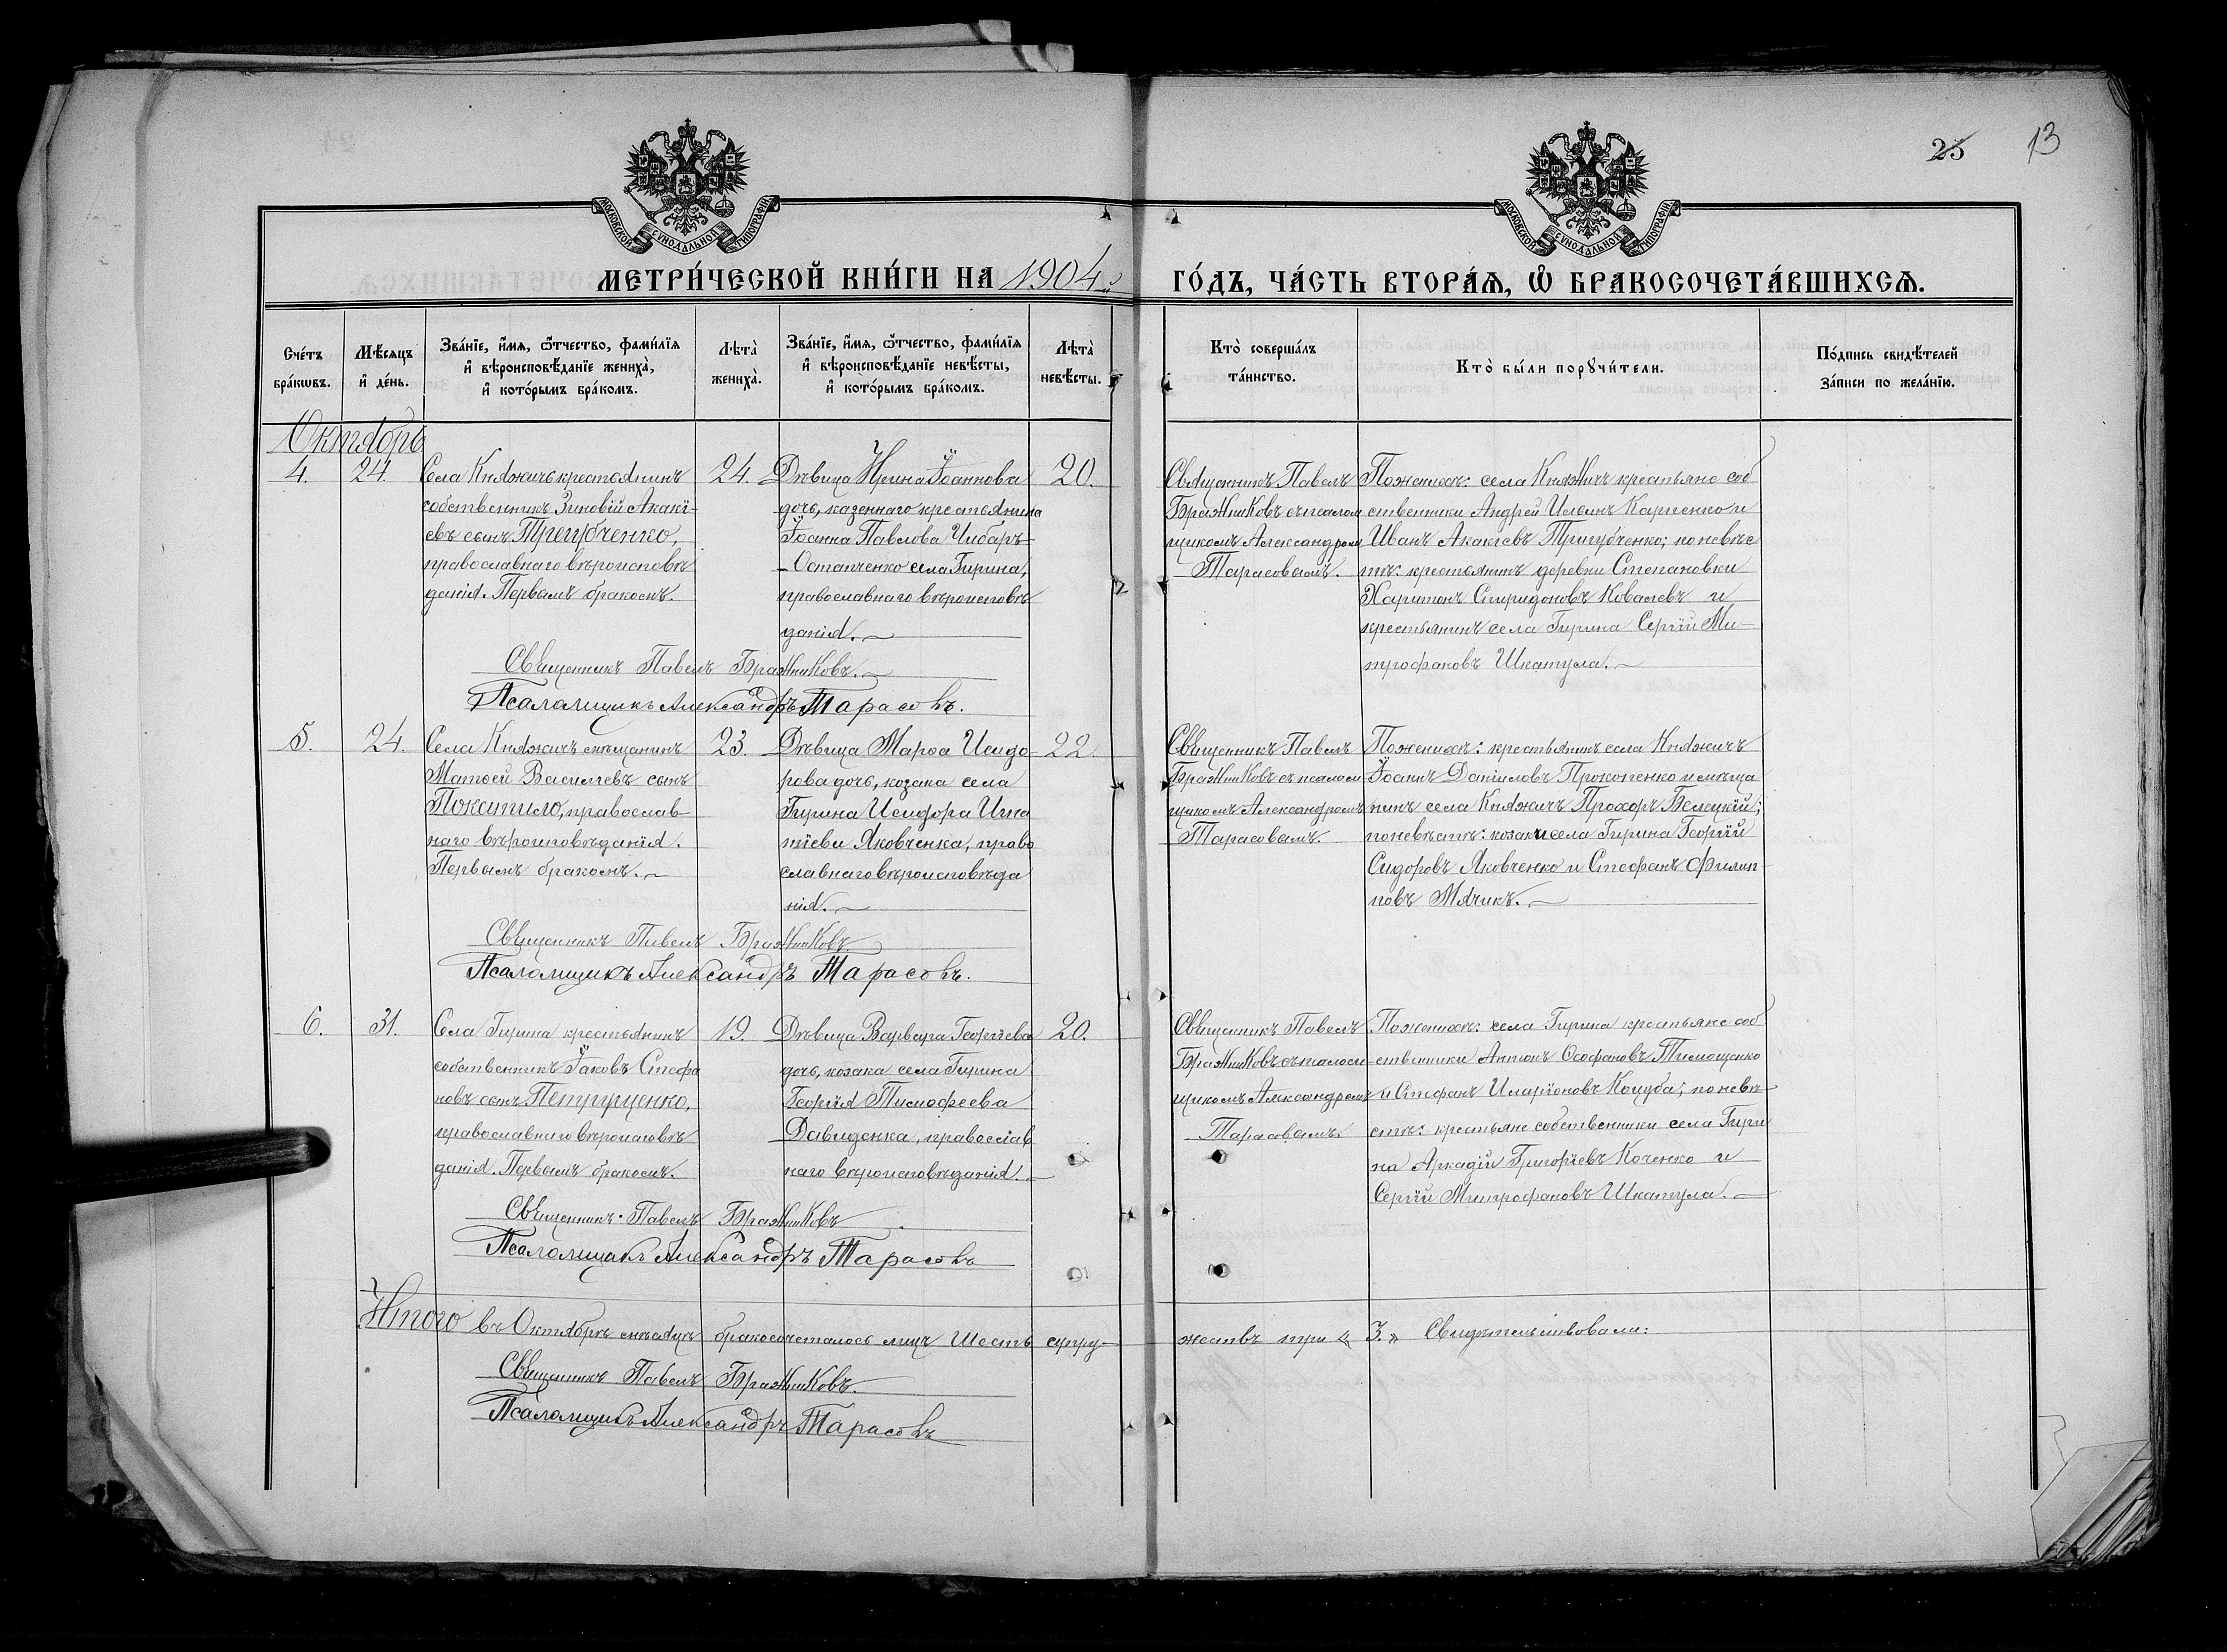 25 13
МОСКОВСКОЙ СУНОДАЛЬНОЙ ТИПОГРАФІИ
МОСКОВСКОЙ СУНОДАЛЬНОЙ ТИПОГРАФІИ
МЕТРИ́ЧЕСКОЙ КНИ́ГИ НА 1904й ГО́ДЪ, ЧА́СТЬ ВТОРА́Ѧ, Ѽ БРАКОСОЧЕТА́ВШИХСѦ.
Сче́тъ
бра́кѡвъ.
Мѣ́сѧцъ
и҆ де́нь.
Зва́нїе, и҆́мѧ, ѻ҆́тчество, фами́лїѧ
и҆ вѣроисповѣ́данїе жениха̀,
и҆ кото́рымъ бра́комъ.
Лѣта̀
жениха̀.
Зва́нїе, и҆́мѧ, ѻ҆́тчество, фами́лїѧ
и҆ вѣроисповѣ́данїе невѣ́сты,
и҆ кото́рымъ бра́комъ.
Лѣта̀
невѣ́сты.
Кто̀ соверша́лъ
та́инство.
Кто̀ бы́ли порꙋчи́тели.
По́дпись свидѣ́телей
за́писи по жела́нїю.
Октябрь
4.
24.
Села Княжичъ крестьянинъ
собственникъ Зиновій Акакі-
евъ сынъ Тригубченко,
православнаго вѣроисповѣ
данія. Первымъ бракомъ.
24.
Дѣвица Ирина Іоаннова
дочь, казеннаго крестьянина
Іоанна Павлова Чибаръ-
-Остапченко села Гирина,
православнаго вѣроисповѣ
данія.
20.
Священникъ Павелъ
Бражниковъ съ псалом
щикомъ Александромъ
Тарасовымъ.
По женихѣ: села Княжичъ крестьяне соб
ственники Андрей Ильинъ Карпенко и
Иванъ Акакіевъ Тригубченко; по невѣс
тѣ: крестьянинъ деревни Степановки
Харитонъ Спиридоновъ Ковалевъ и
крестьянинъ села Гирина Сергій Ми-
трофановъ Шкатула.
Священникъ Павелъ Бражниковъ.
Псаломщикъ Александръ Тарасовъ.
5.
24.
Села Княжичъ мѣщанинъ
Матѳей Васильевъ сынъ
Покотило, православ-
наго вѣроисповѣданія.
Первымъ бракомъ.
23.
Дѣвица Марѳа Исидо-
рова дочь, козака села
Гирина Исидора Игна
тіева Яковченка, право
славнаго вѣроисповѣда
нія.
22.
Священникъ Павелъ
Бражниковъ съ псалом
щикомъ Александромъ
Тарасовымъ.
По женихѣ: крестьянинъ села Княжичъ
Іоаннъ Даніиловъ Прокопенко и мѣща
нинъ села Княжичъ Прохоръ Белецкій;
по невѣстѣ: козаки села Гирина Георгій
Сидоровъ Яковченко и Стефанъ Филип-
повъ Мячикъ.
Священникъ Павелъ Бражниковъ
Псаломщикъ Александръ Тарасовъ.
6.
31.
Села Гирина крестьянинъ
собственникъ Іаковъ Стефа
новъ сынъ
православнаго вѣроисповѣ
данія. Первымъ бракомъ.
19.
Дѣвица Варвара Георгіева
дочь, козака села Гирина
Георгія Тимофеева
Давиденка, православ
наго вѣроисповѣданія.
20.
Священникъ Павелъ
Бражниковъ съ псалом
щикомъ Александромъ
Тарасовымъ.
По женихѣ: села Гирина крестьяне соб
ственники Антонъ Ѳеофановъ Тимощенко
и Стефанъ Иларіоновъ Коцуба; по невѣ-
стѣ: крестьяне собственники села Гири
на Аркадій Григоріевъ Коченко и
Сергій Митрофановъ Шкатула.
Священникъ Павелъ Бражниковъ
Псаломщикъ Александръ Тарасовъ
Итого въ Октябрѣ мѣсяцѣ бракосочеталось лицъ шесть супру-
жествъ три « 3. » Свидѣтельствовали:
Священникъ Павелъ Бражниковъ.
Псаломщикъ Александръ Тарасовъ